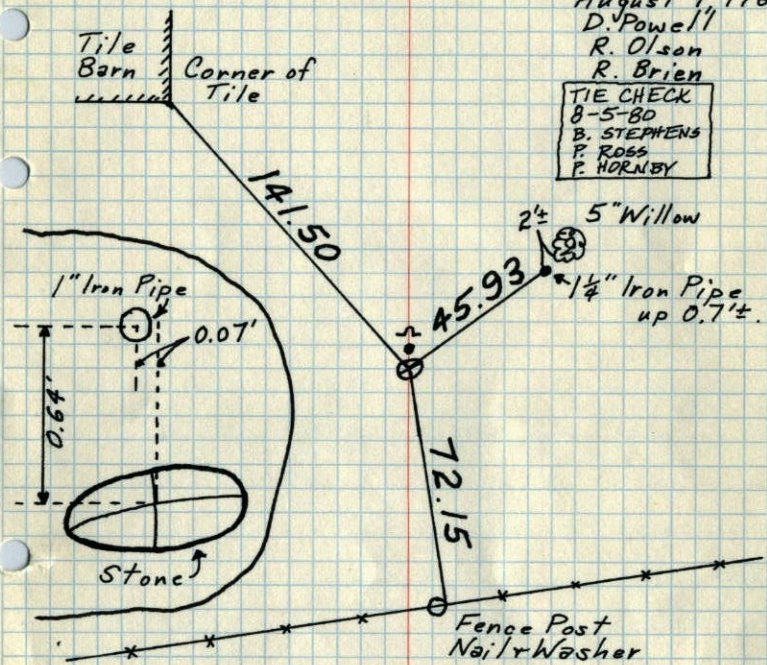 August
D. Powell
R. Olson
R. Brien
TIE CHECK
8-5-80
B. STEPHENS
P. ROSS
P. HORNBY
Tile
Barn
Corner of
Tile
141.50
2'±
5" Willow
45.93
1¼" Iron Pipe
up 0.7'±.
1" Iron Pipe
0.07'
0.64'
72.15
Stone
Fence Post
Nail & Washer